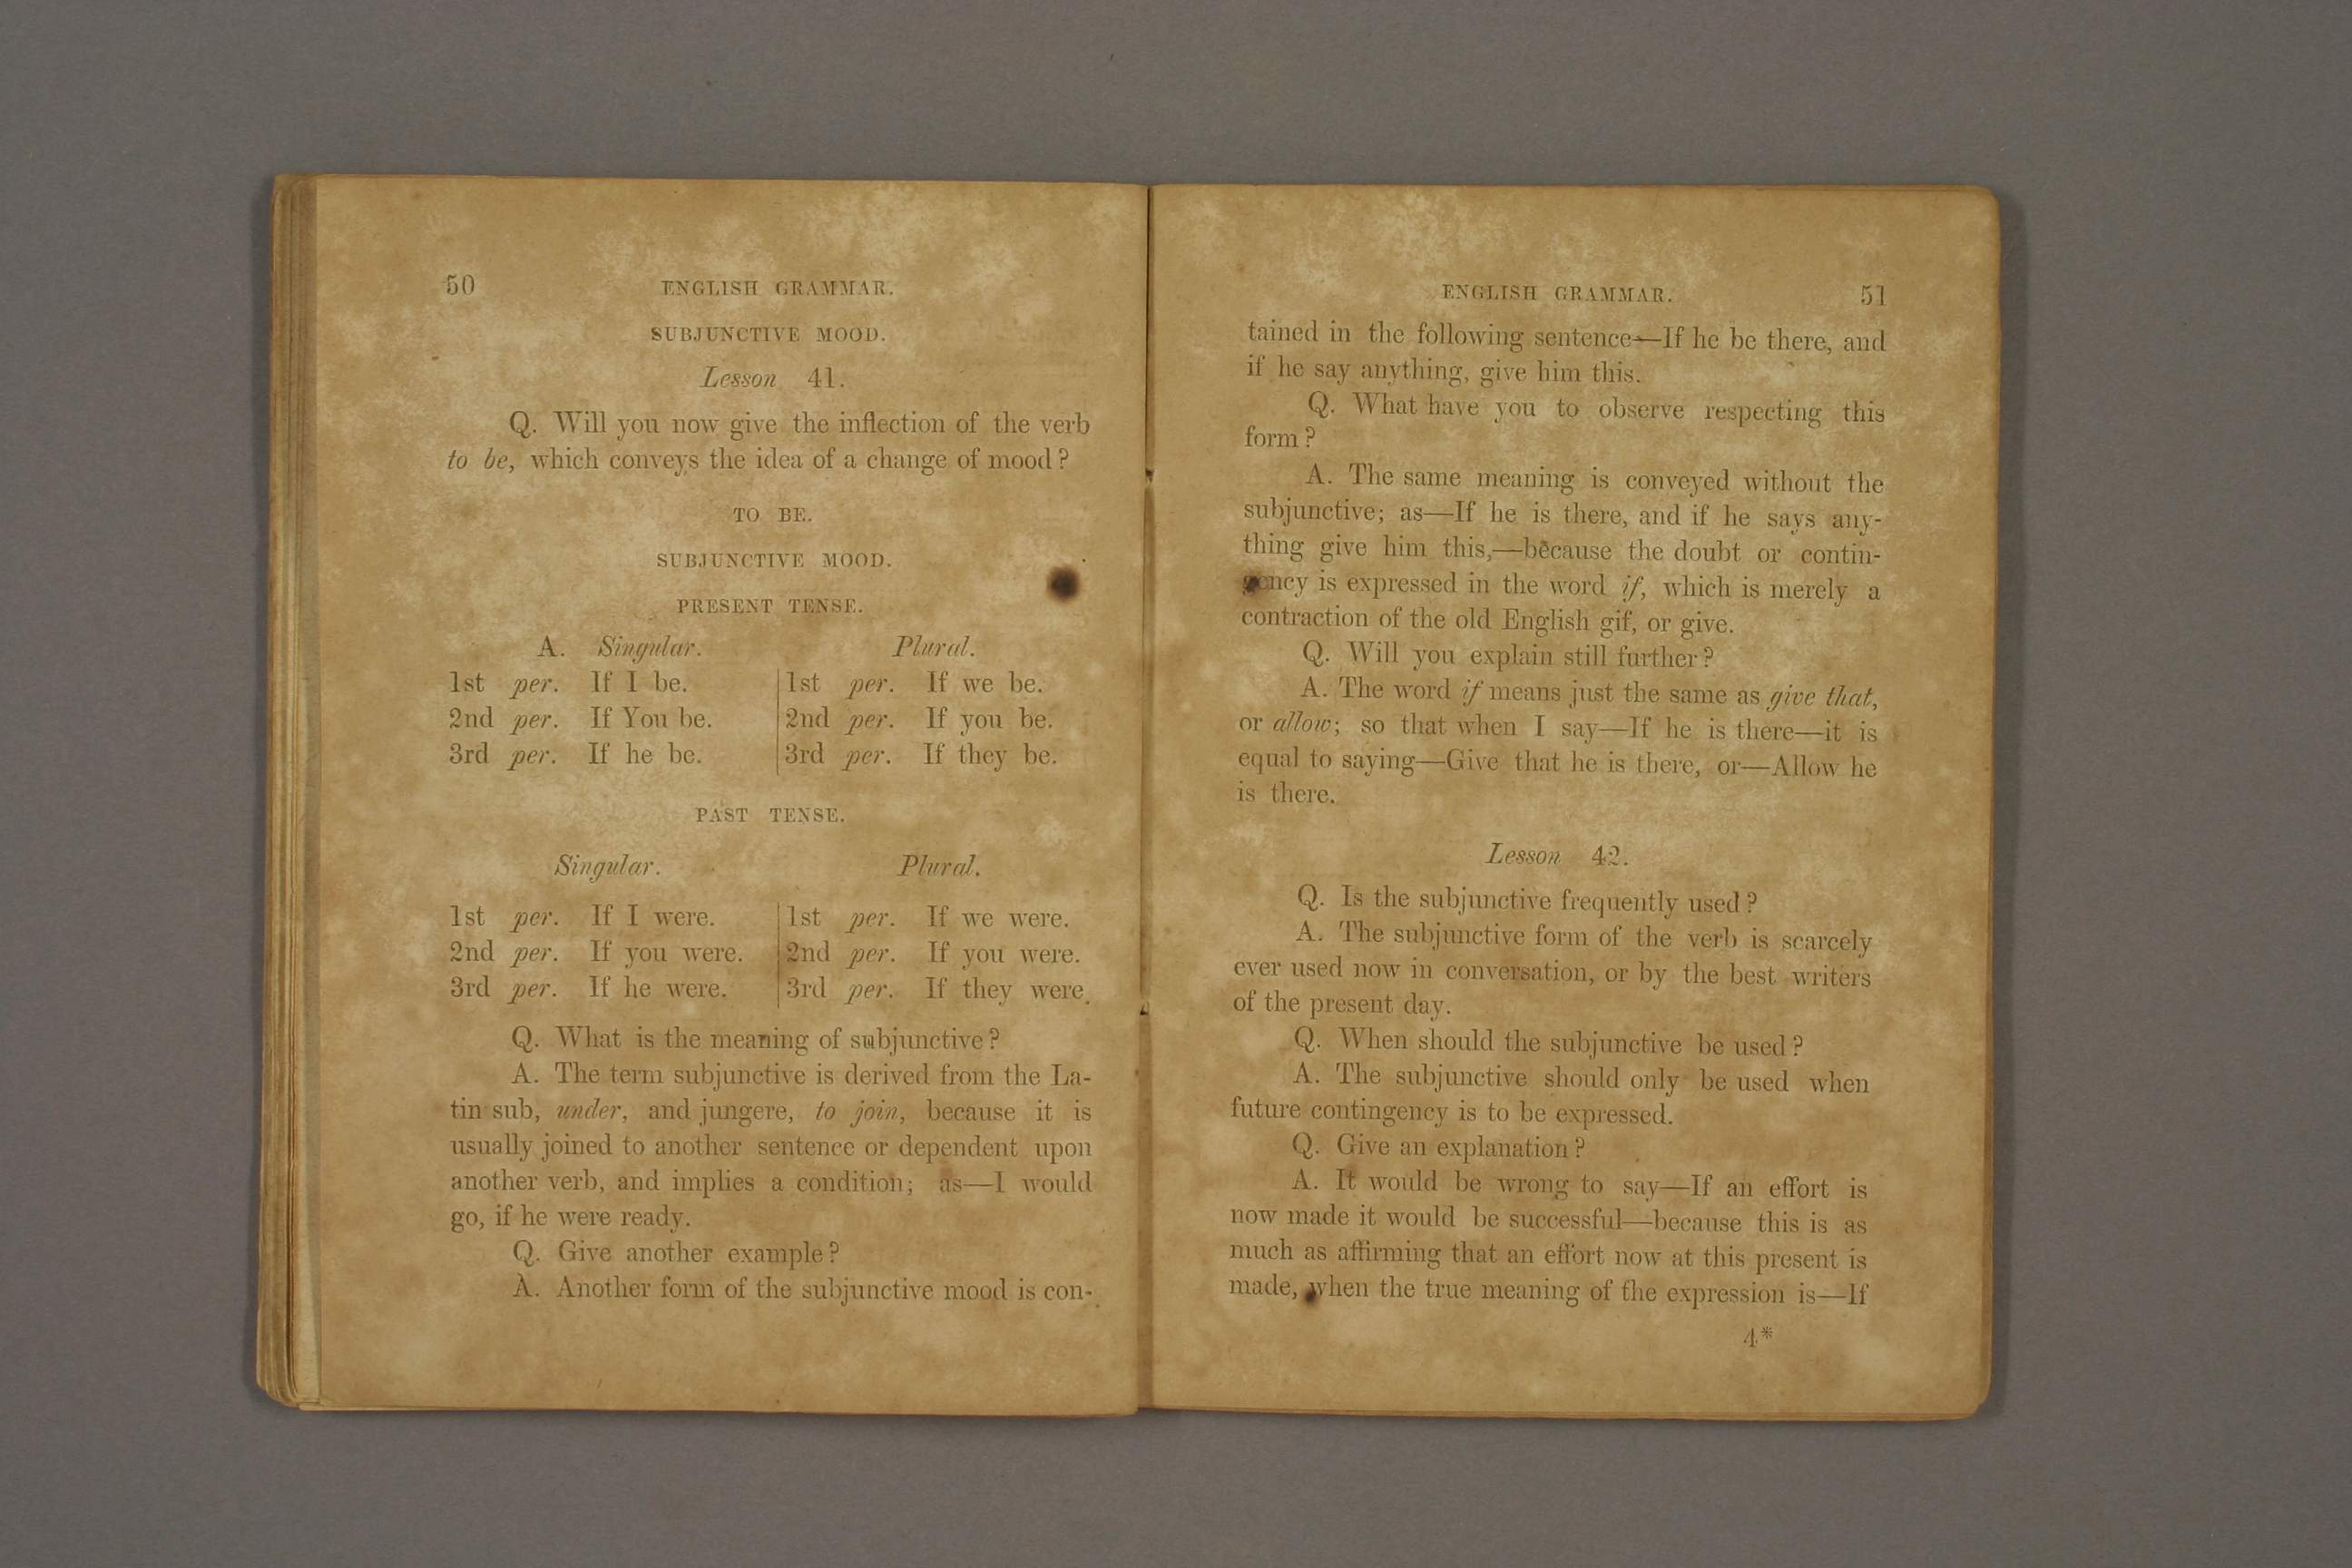 50 ENGLISH GRAMMAR.
SUBJUNCTIVE MOOD.
Lesson 41.
Q. Will you now give the inflection of the verb
to be, which conveys the idea of a change of mood?
TO BE.
SUBJUNCTIVE MOOD.
PRESENT TENSE.
A. Singular. Plural.
1st per. If I be. 1st per. If we be.
2nd per. If You be. 2nd per. If you be.
3rd per. If he be. 3rd per. If they be.
PAST TENSE.
Singular. Plural.
1st per. If I were. 1st per. If we were.
2nd per. If you were. 2nd per. If you were.
3rd per. If he were. 3rd per. If they were.
Q. What is the meaning of subjunctive?
A. The term subjunctive is derived from the La-
tin sub, under, and jungere, to join, because it is
usually joined to another sentence or dependent upon
another verb, and implies a condition; as—I would
go, if he were ready.
Q. Give another example?
A. Another form of the subjunctive mood is con-
ENGLISH GRAMMAR. 51
tained in the following sentence—If he be there, and
if he say anything, give him this.
Q. What have you to observe respecting this
form?
A. The same meaning is conveyed without the
subjunctive; as—If he is there, and if he says any-
thing give him this,—because the doubt or contin-
gency is expressed in the word if, which is merely a
contraction of the old English gif, or give.
Q. Will you explain still further?
A. The word if means just the same as give that,
or allow; so that when I say—If he is there—it is
equal to saying—Give that he is there, or—Allow he
is there.
Lesson 42.
Q. Is the subjunctive frequently used?
A. The subjunctive form of the verb is scarcely
ever used now in conversation, or by the best writers
of the present day.
Q. When should the subjunctive be used?
A. The subjunctive should only be used when
future contingency is to be expressed.
Q. Give an explanation?
A. It would be wrong to say—If an effort is
now made it would be successful—because this is as
much as affirming that an effort now at this present is
made, when the true meaning of the expression is—If
4*